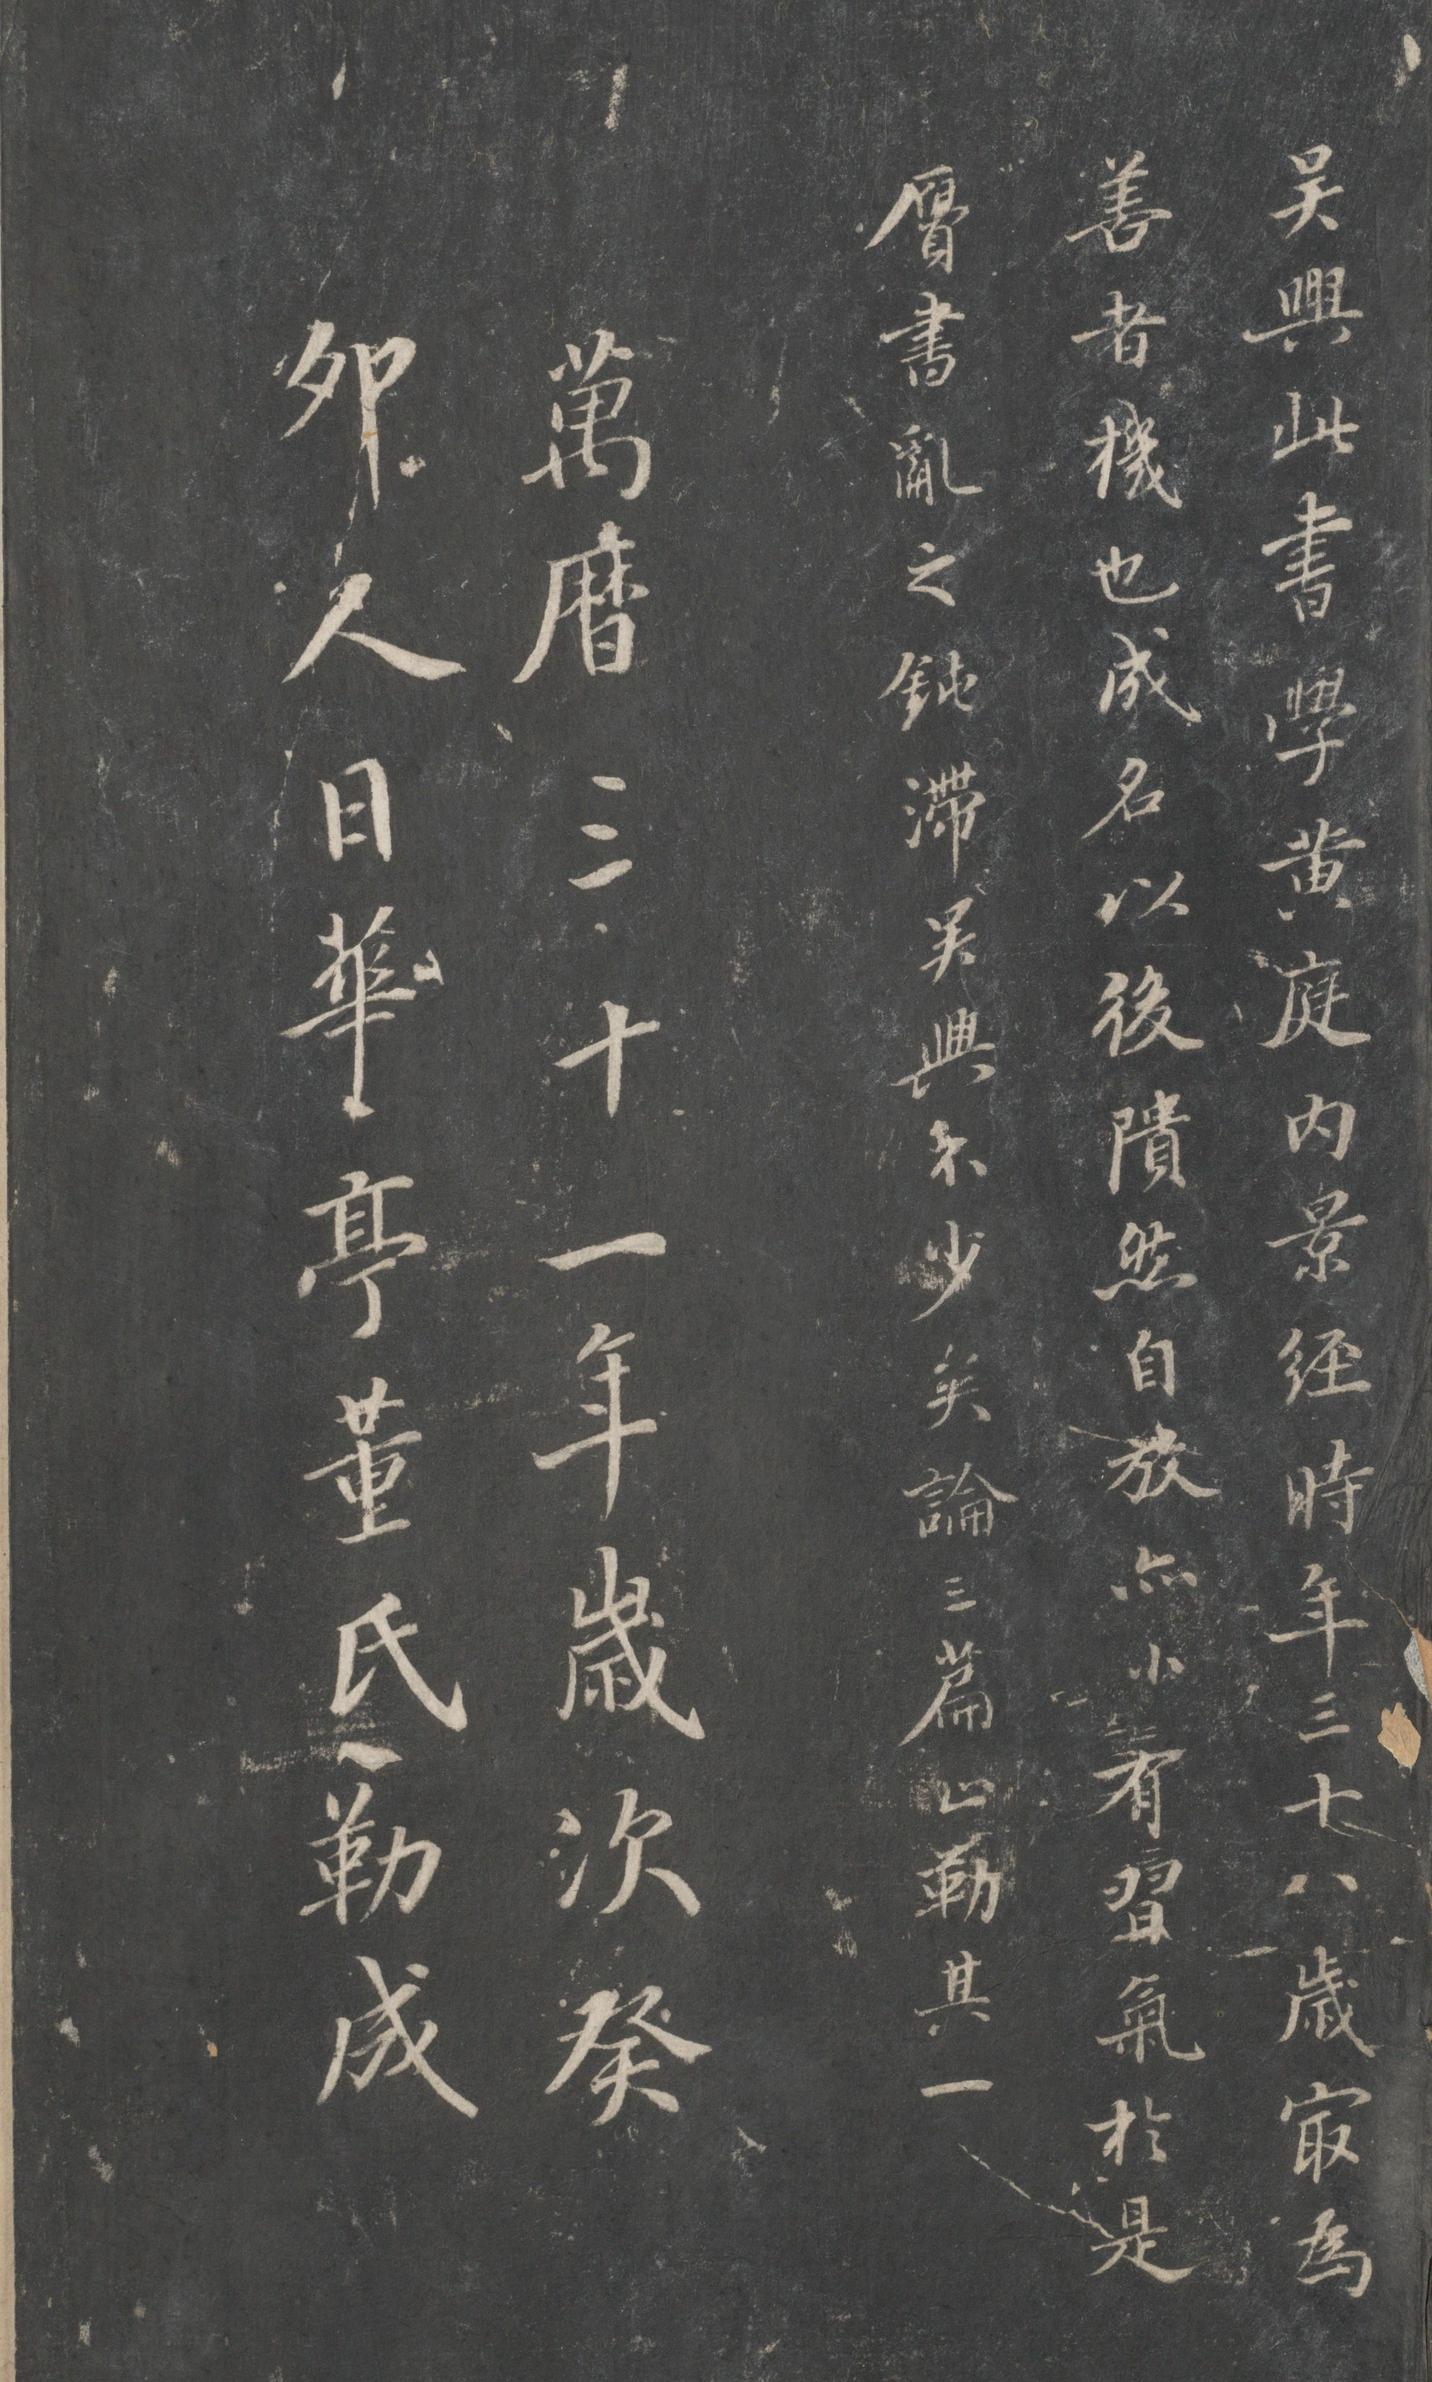 吴興此書學黄庭内景經時年三七八歲㝡為
善者機也成名以後隤然自放亦小有習氣於是
贋書亂之鈍滯吴興不少矣論三篇止勒其一
萬曆三十一年歲次癸
卯人日華亭董氏勒成